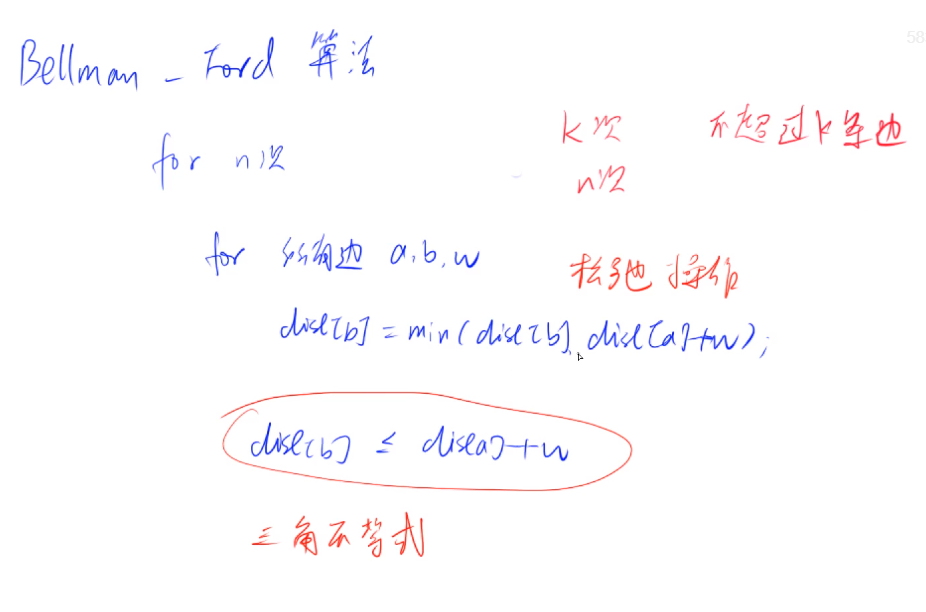 58
Bellman - Ford 算法
for n次
k次 不超过k条边
n次
for 所有边 a,b,w
松弛操作
dist[b] = min(dist[b], dist[a]+w);
dist[b] ≤ dist[a]+w
三角不等式